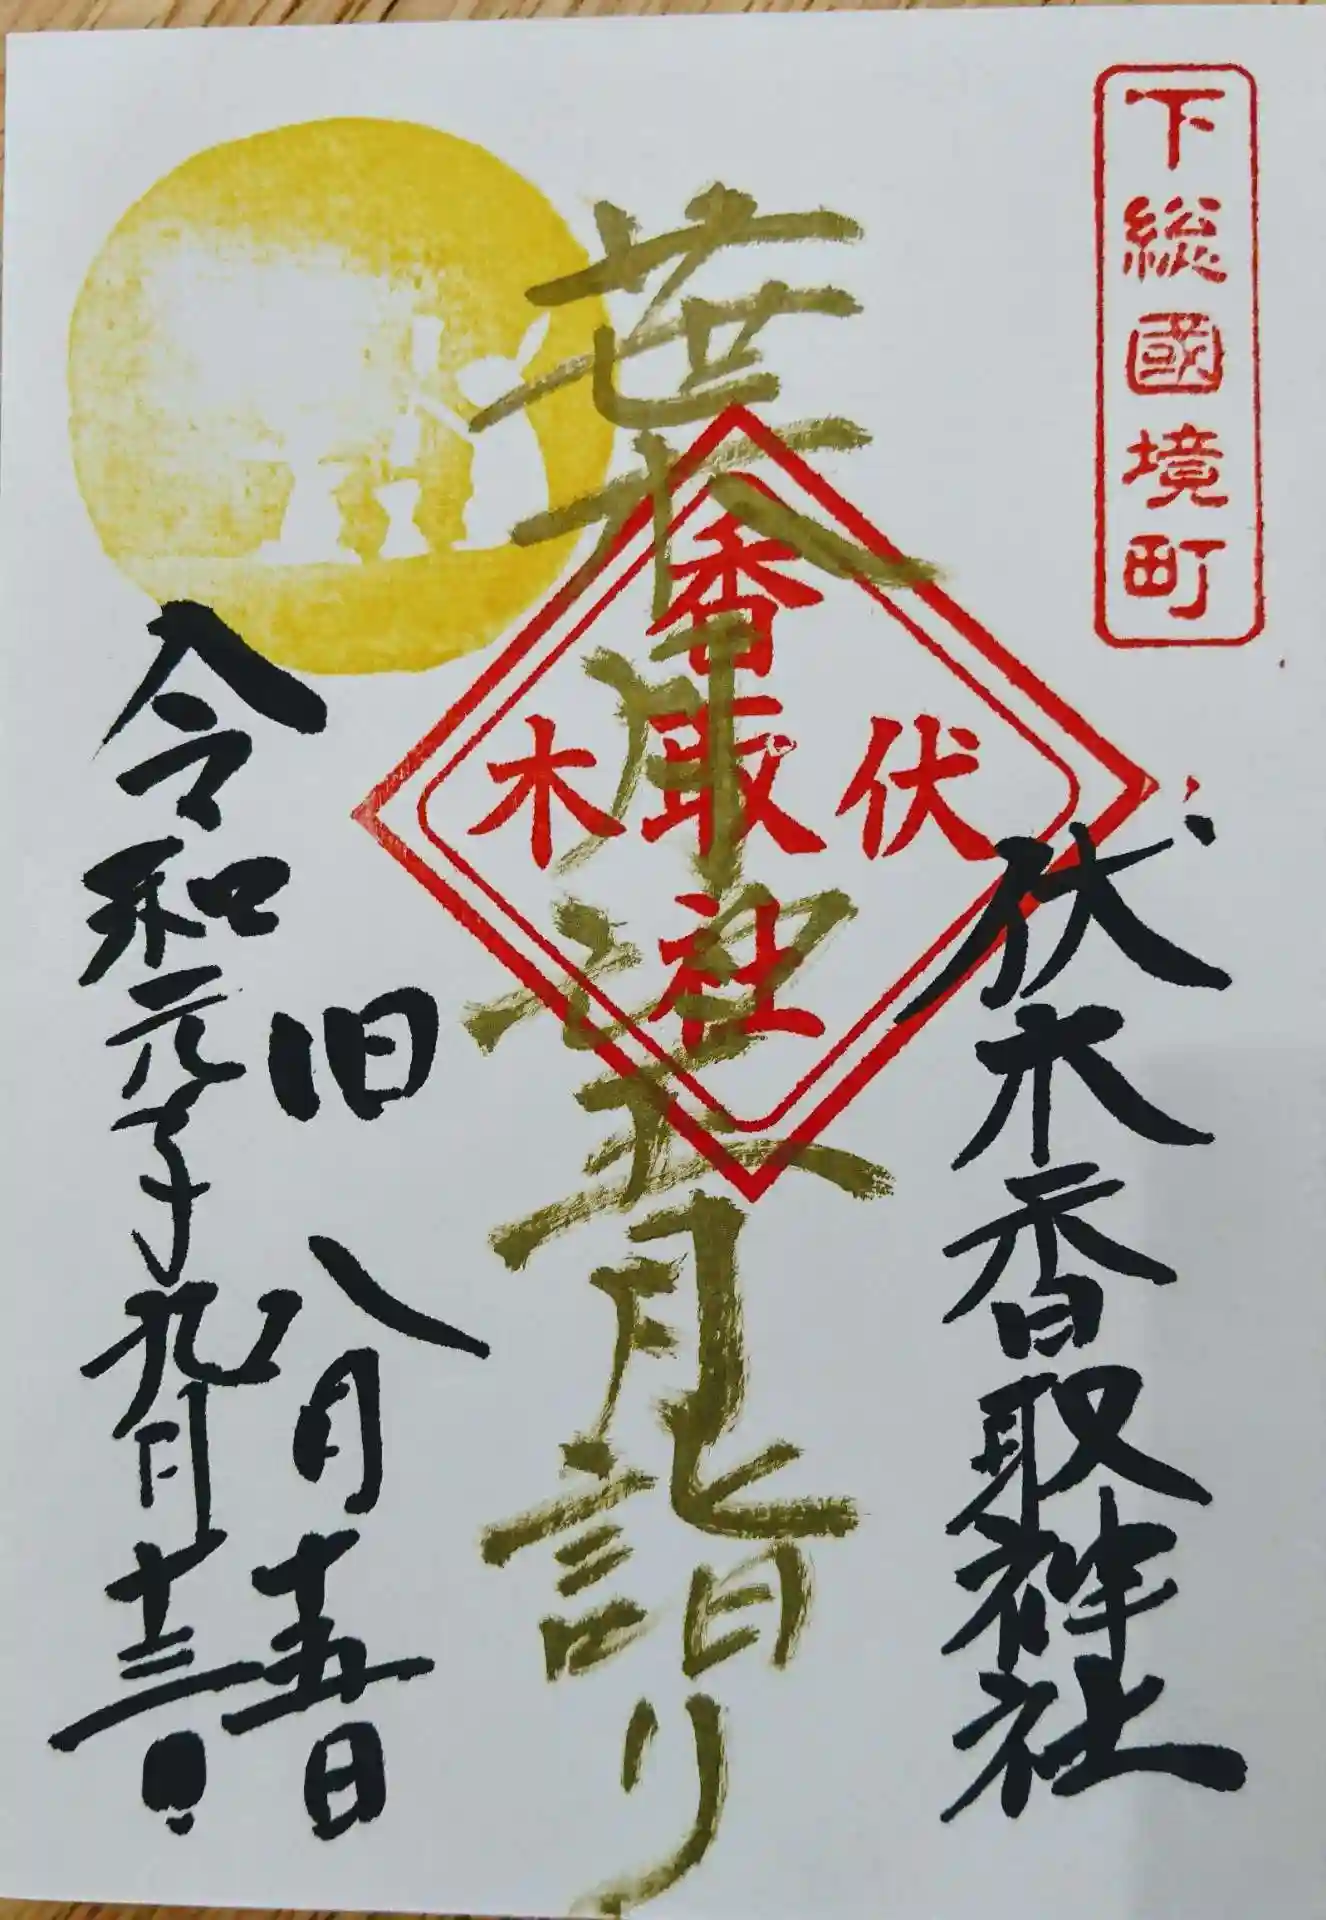 下総國境町
伏木香取神社
伏木
香取社
葉月望月詣り
旧八月十五日
令和元年九月十三日